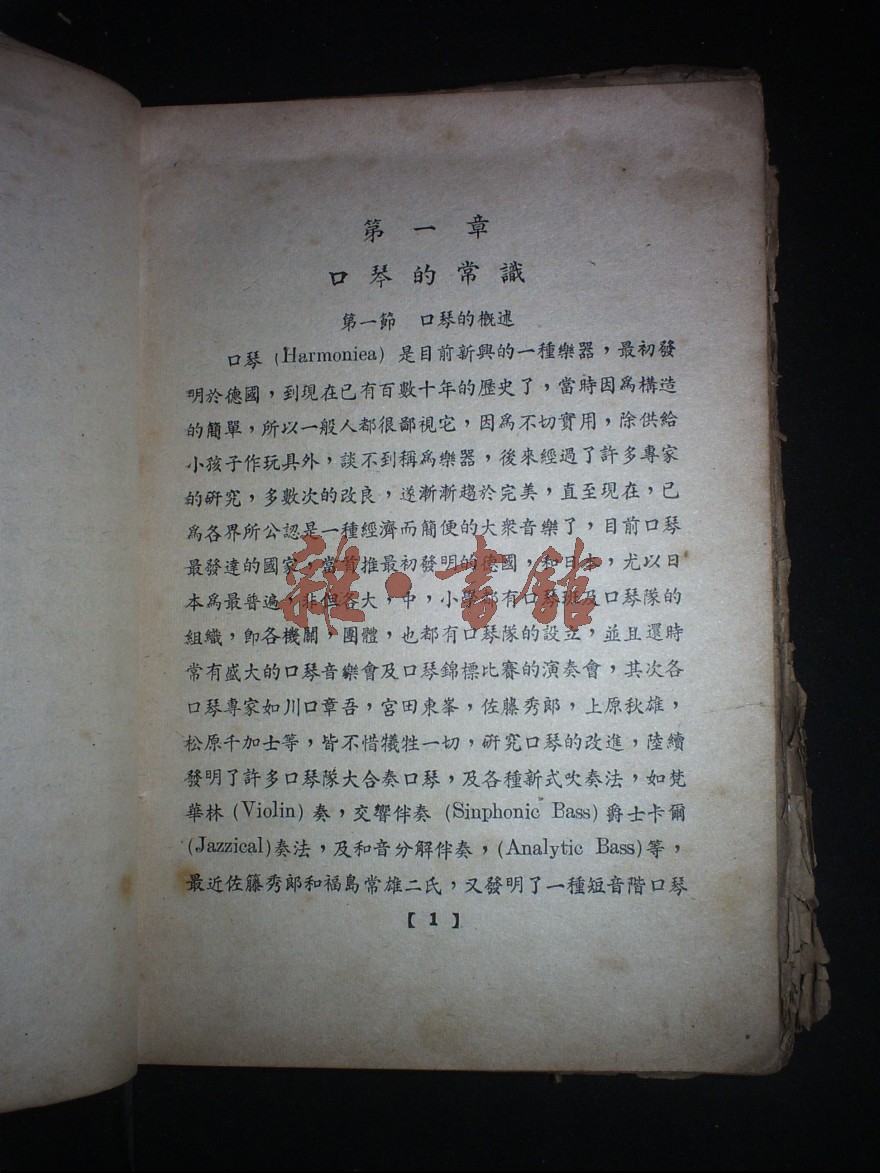 第一章
口琴的常識
第一節 口琴的概述
口琴 (Harmoniea) 是目前新興的一種樂器，最初發
明於德國，到現在已有百數十年的歷史了，當時因爲構造
的簡單，所以一般人都很鄙視它，因爲不切實用，除供給
小孩子作玩具外，談不到稱爲樂器，後來經過了許多專家
的硏究，多數次的改良，遂漸漸趨於完美，直至現在，已
爲各界所公認是一種經濟而簡便的大衆音樂了，目前口琴
最發達的國家，當首推最初發明的德國，和日本，尤以日
本爲最普遍，非但各大，中，小學都有口琴班及口琴隊的
組織，卽各機關，團體，也都有口琴隊的設立，並且還時
常有盛大的口琴音樂會及口琴錦標比賽的演奏會，其次各
口琴專家如川口章吾，宮田東峯，佐藤秀郞，上原秋雄，
松原千加士等，皆不惜犠牲一切，硏究口琴的改進，陸續
發明了許多口琴隊大合奏口琴，及各種新式吹奏法，如梵
華林 (Violin) 奏，交響伴奏 (Sinphonic Bass) 爵士卡爾
(Jazzical)奏法，及和音分解伴奏，(Analytic Bass)等，
最近佐藤秀郞和福島常雄二氏，又發明了一種短音階口琴
【 1 】
雜·書館